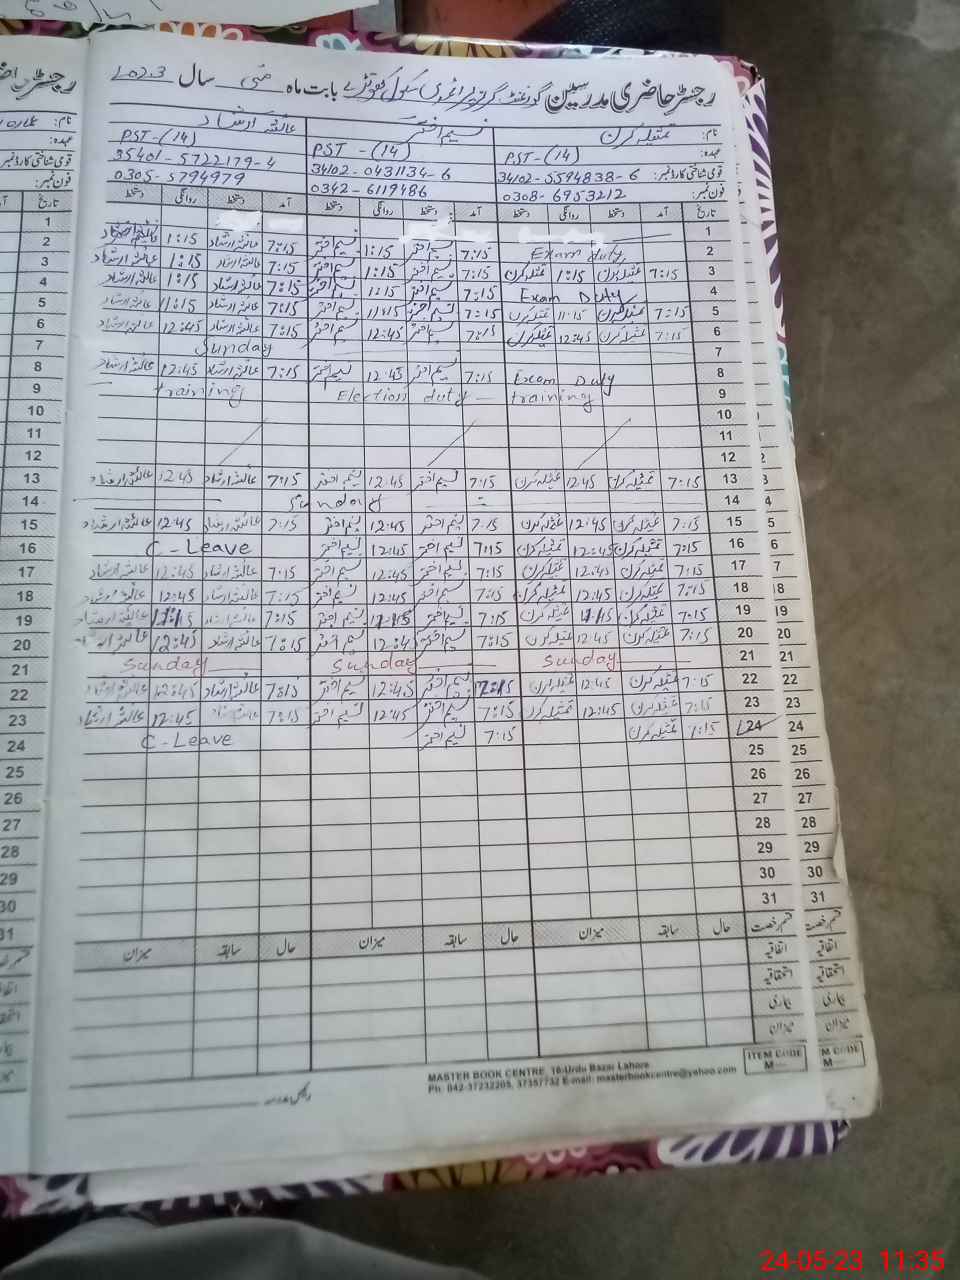 رجسٹر حاضری مدرسین گورنمنٹ گرلز پرائمری سکول بابت ماہ مئی سال 2023
نام: عقیلہ کرن نسیم اختر عائشہ ارشاد
عہدہ: PST-(14) PST-(14) PST-(14)
قومی شناختی کارڈ نمبر: 34102-5594838-6 34102-0431134-6 35401-5722179-4
فون نمبر: 0308-6953212 0342-6119486 0305-5794979
تاریخ آمد دستخط روانگی دستخط آمد دستخط روانگی دستخط آمد دستخط روانگی دستخط
1
2 Exam duty 7:15 نسیم اختر 1:15 نسیم اختر 7:15 عائشہ ارشاد 1:15
3 7:15 عقیلہ کرن 1:15 عقیلہ کرن 7:15 نسیم اختر 1:15 نسیم اختر 7:15 عائشہ ارشاد 1:15 عائشہ ارشاد
4 Exam Duty 7:15 نسیم اختر 1:15 نسیم اختر 7:15 عائشہ ارشاد 1:15 عائشہ ارشاد
5 7:15 عقیلہ کرن 11:15 عقیلہ کرن 7:15 نسیم اختر 11:15 نسیم اختر 7:15 عائشہ ارشاد 11:15 عائشہ ارشاد
6 7:15 عقیلہ کرن 12:45 عقیلہ کرن 7:15 نسیم اختر 12:45 نسیم اختر 7:15 عائشہ ارشاد 12:45 عائشہ ارشاد
7 Sunday
8 Exam Duty 7:15 نسیم اختر 12:45 نسیم اختر 7:15 عائشہ ارشاد 12:45 عائشہ ارشاد
9 training Election duty training
10
11
12
13 7:15 عقیلہ کرن 12:45 عقیلہ کرن 7:15 نسیم اختر 12:45 نسیم اختر 7:15 عائشہ ارشاد 12:45 عائشہ ارشاد
14 Sunday
15 7:15 عقیلہ کرن 12:45 عقیلہ کرن 7:15 نسیم اختر 12:45 نسیم اختر 7:15 عائشہ ارشاد 12:45 عائشہ ارشاد
16 7:15 عقیلہ کرن 12:45 عقیلہ کرن 7:15 نسیم اختر 12:45 نسیم اختر C-Leave
17 7:15 عقیلہ کرن 12:45 عقیلہ کرن 7:15 نسیم اختر 12:45 نسیم اختر 7:15 عائشہ ارشاد 12:45 عائشہ ارشاد
18 7:15 عقیلہ کرن 12:45 عقیلہ کرن 7:15 نسیم اختر 12:45 نسیم اختر 7:15 عائشہ ارشاد 12:45 عائشہ ارشاد
19 7:15 عقیلہ کرن عقیلہ کرن 7:15 نسیم اختر نسیم اختر 7:15 عائشہ ارشاد عائشہ ارشاد
20 7:15 عقیلہ کرن 12:45 عقیلہ کرن 7:15 نسیم اختر 12:45 نسیم اختر 7:15 عائشہ ارشاد 12:45 عائشہ ارشاد
21 Sunday Sunday Sunday
22 7:15 عقیلہ کرن 12:45 عقیلہ کرن 7:15 نسیم اختر 12:45 نسیم اختر 7:15 عائشہ ارشاد 12:45 عائشہ ارشاد
23 7:15 عقیلہ کرن 12:45 عقیلہ کرن 7:15 نسیم اختر 12:45 نسیم اختر 7:15 عائشہ ارشاد 12:45 عائشہ ارشاد
24 7:15 عقیلہ کرن 7:15 نسیم اختر C-Leave
25
26
27
28
29
30
31
قسم رخصت حال سابقہ میزان حال سابقہ میزان حال سابقہ میزان
اتفاقیہ
استحقاقیہ
بیماری
میزان
ITEM CODE
M
MASTER BOOK CENTRE, 16-Urdu Bazar Lahore
Ph: 042-37232205, 37357732 E-mail: masterbookcentre@yahoo.com
24-05-23 11:35